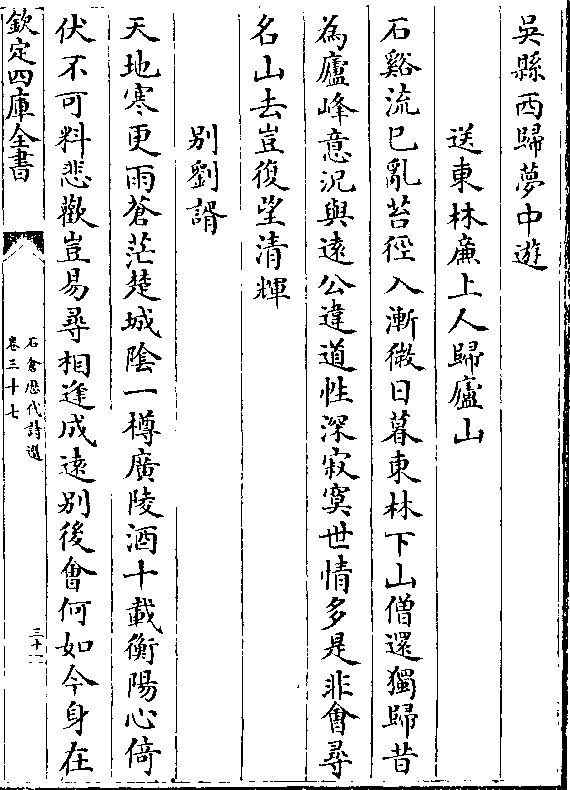 吳縣西歸夢中遊
送東林廉上人歸廬山
石谿流已亂苔徑入漸微日暮東林下山僧還獨歸昔
為廬峰意況與遠公違道性深寂寞世情多是非會尋
名山去豈復望清輝
別劉諝
天地寒更雨蒼茫楚城陰一樽廣陵酒十載衡陽心倚
伏不可料悲歡豈易尋相逢成遠別後會何如今身在
欽定四庫全書
石倉歷代詩選
卷三十七
三十一